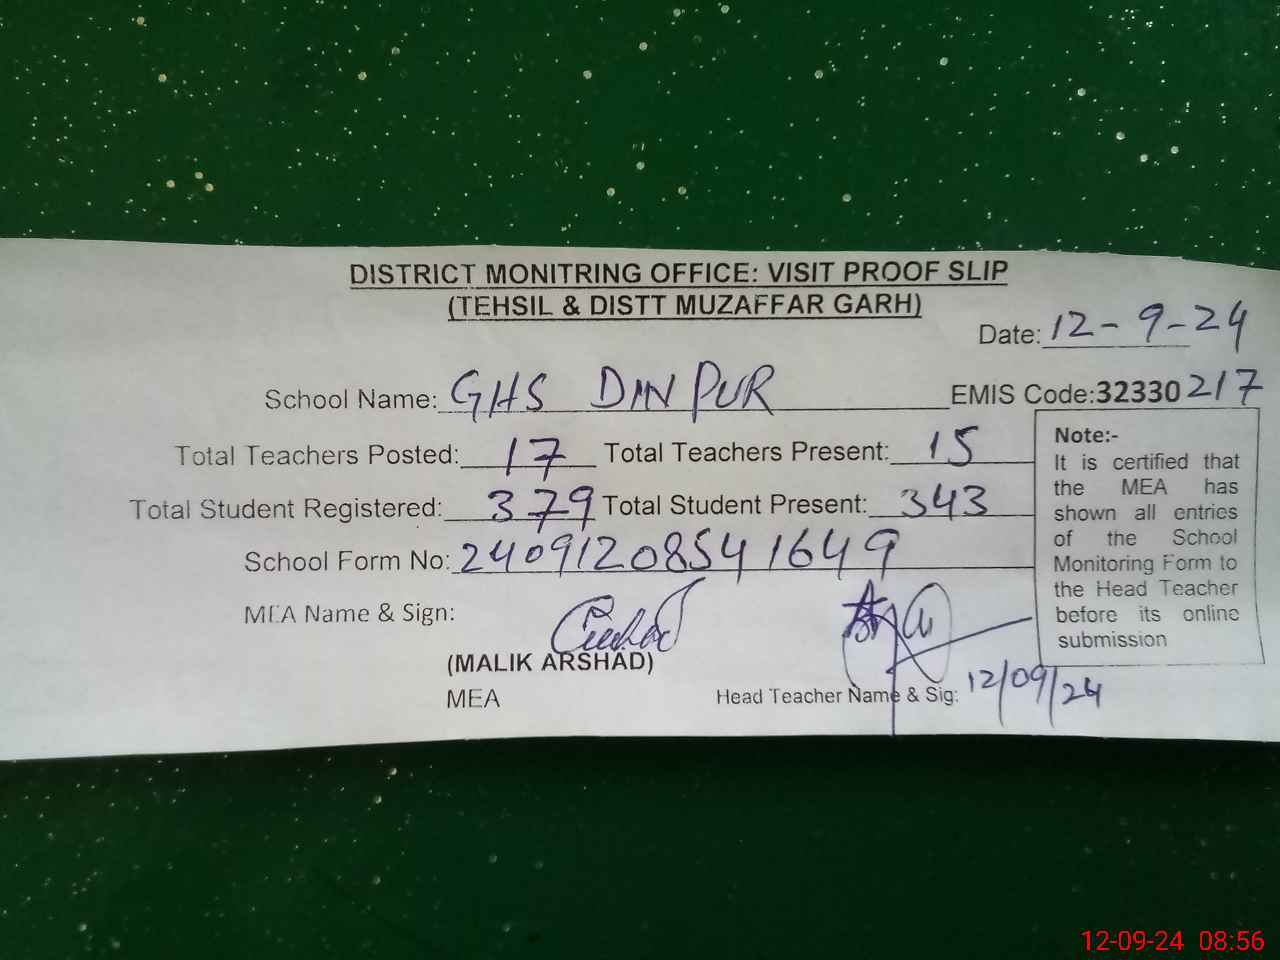 DISTRICT MONITRING OFFICE: VISIT PROOF SLIP
(TEHSIL & DISTT MUZAFFAR GARH)
Date: 12-9-24
School Name: GHS DIN PUR EMIS Code:32330217
Total Teachers Posted: 17 Total Teachers Present: 15
Total Student Registered: 379 Total Student Present: 343
School Form No: 24091208541649
MEA Name & Sign:
(MALIK ARSHAD)
MEA
Head Teacher Name & Sig: 12/09/24
Note:-
It is certified that
the MEA has
shown all entries
of the School
Monitoring Form to
the Head Teacher
before its online
submission
12-09-24 08:56